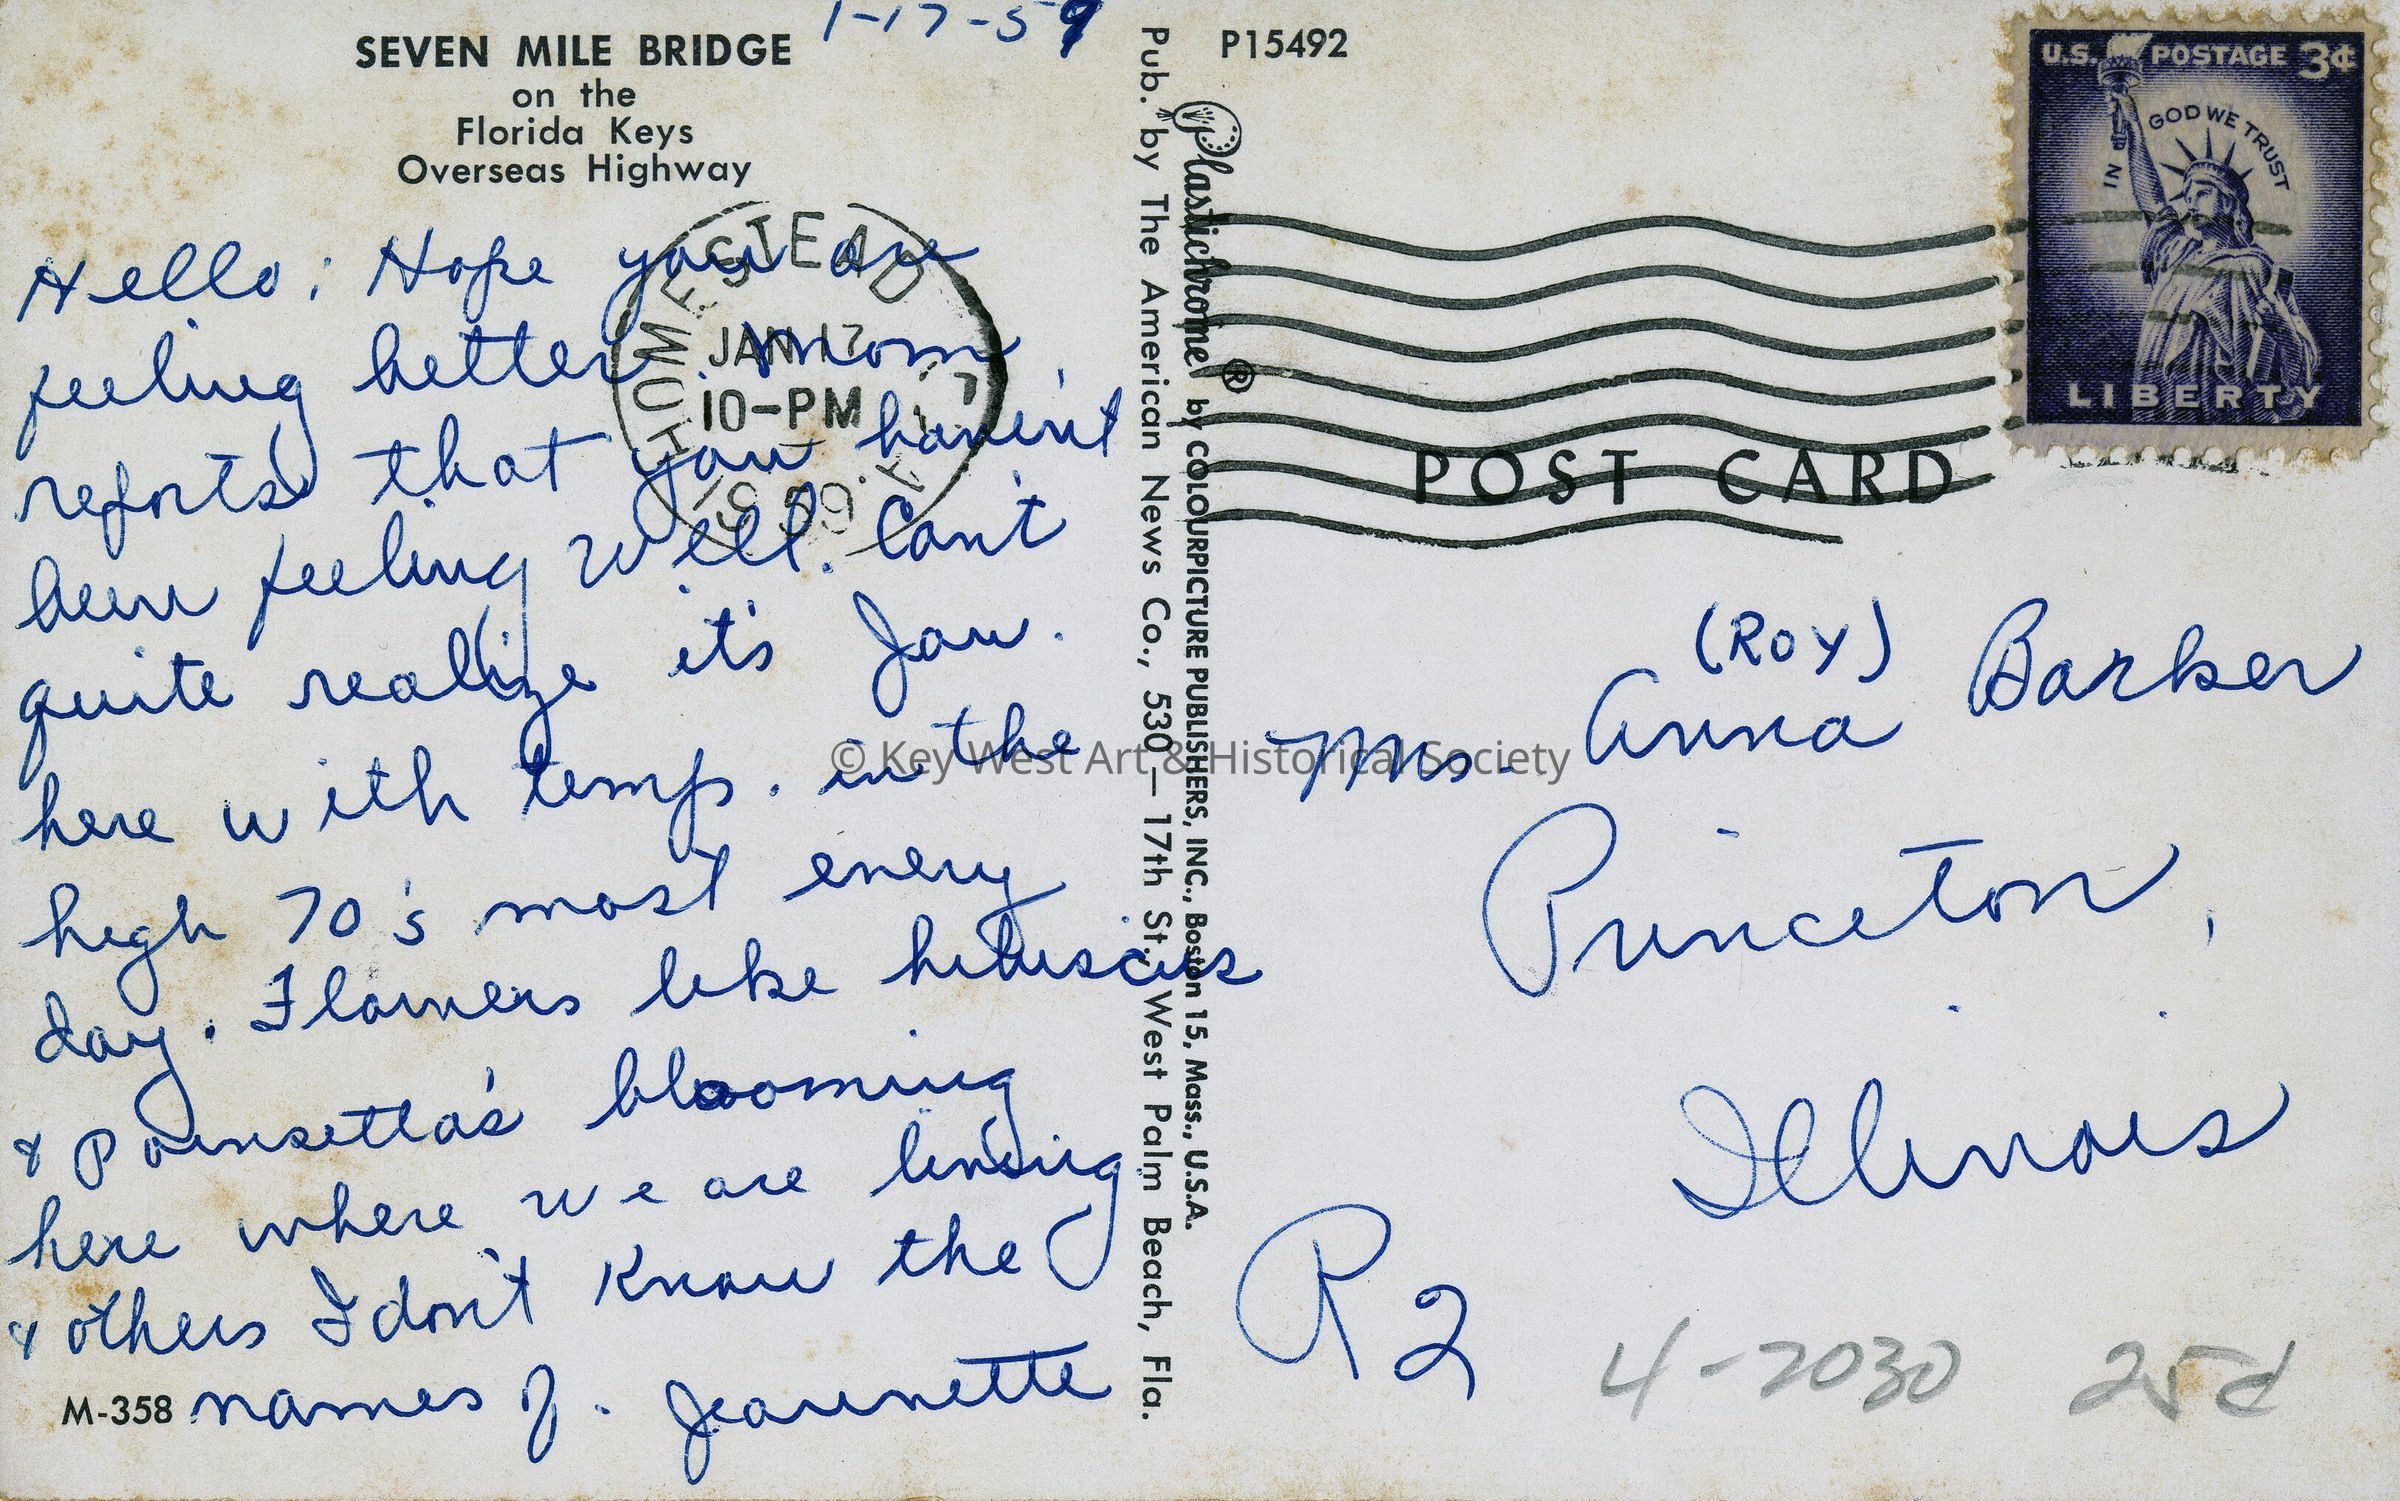 1-17-59
SEVEN MILE BRIDGE
on the
Florida Keys
Overseas Highway
Hello; Hope you are
feeling better. Mom
reports that you haven't
been feeling well. Can't
quite realize it's Jan.
here with temp. in the
high 70's most every
day. Flowers like hibiscus
& Poinsetta's blooming
here where we are living
& others I don't know the
names of. Jeannette
M-358
HOMESTEAD
JAN 17
10-PM
1959
FLA.
Pub. by The American News Co., 530—17th St., West Palm Beach, Fla.
Plastichrome ® by COLOURPICTURE PUBLISHERS, INC., Boston 15, Mass., U.S.A.
P15492
U.S. POSTAGE 3¢
IN GOD WE TRUST
LIBERTY
POST CARD
(ROY)
Mrs. Anna Barker
Princeton,
Illinois
R 2
4-2030 25¢
© Key West Art & Historical Society